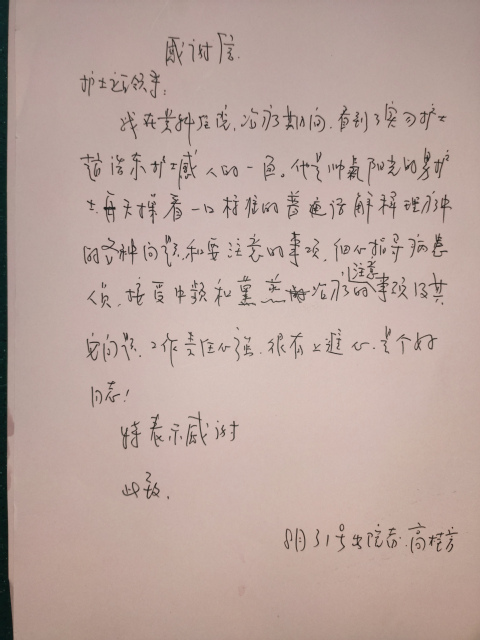 感谢信
护士站领导:
我在贵科住院,治疗期间,看到了实习护士
赵浩东护士感人的一面。他是帅氣阳光的男护
士每天操着一口标准的普通话解释理疗中
的各种问题,和要注意的事项,细心指导病患
人员,接受中频和薰蒸治疗的注意事项及其
它问题,工作责任心强,很有上進心,是个好
同志!
特表示感谢
此致,
8月31号出院者:高桂芳